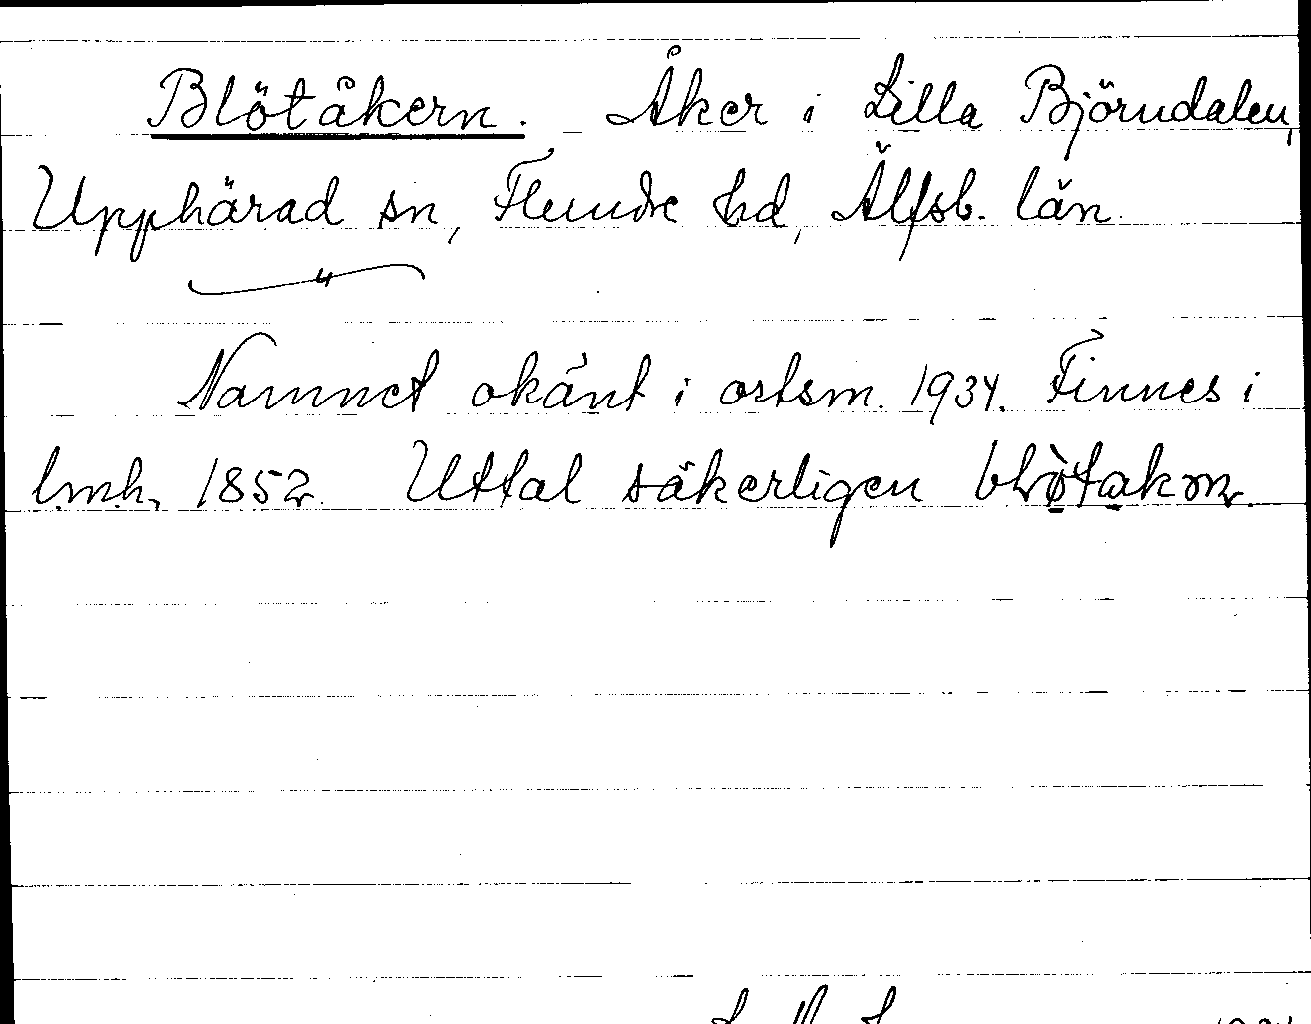 Blötåkern. Åker i Lilla Björndalen,
Upphärad sn, Flundre hd, Älfsb. län.
"
Namnet okänt i ortsm. 1934. Finnes i
l.m.h. 1852. Uttal säkerligen